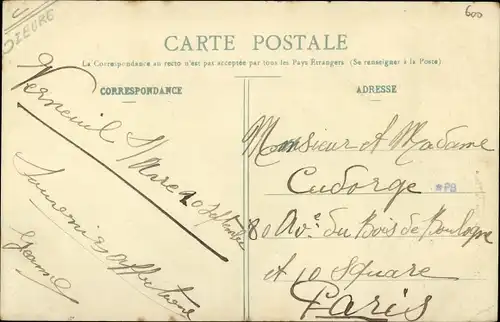 C
DIEURE
600
CARTE POSTALE
La Correspondance au recto n'est pas acceptée par tous les Pays Etrangers (Se renseigner à la Poste)
CORRESPONDANCE
Verneuil S/
10 Septembre
Souvenir affectueux
Jeanne
ADRESSE
Monsieur et Madame
Cudorge
*PB
80 Ave du Bois de Boulogne
et 10 Square
Paris